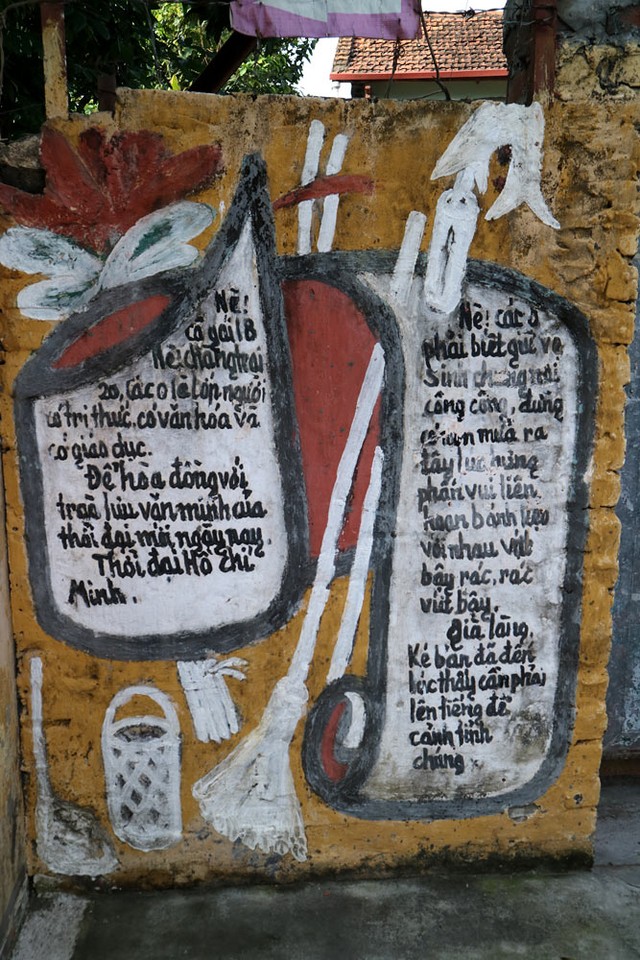 Nè!
cô gái 18
Nè! chàng trai
20, các o là lớp người
có tri thức, có văn hóa và
có giáo dục.
Để hòa đồng với
trào lưu văn minh của
thời đại mới ngày nay.
Thời đại Hồ Chí
Minh.
Nè! các o
phải biết giữ vệ
sinh chung nơi
công cộng, đừng
mưa ra
tây lúc hưng
phấn vui liên
hoan bánh kẹo
với nhau vứt
bậy rác, rác
vứt bậy.
Già làng,
Ké bản đã đến
lúc thấy cần phải
lên tiếng để
cảnh tỉnh
chúng